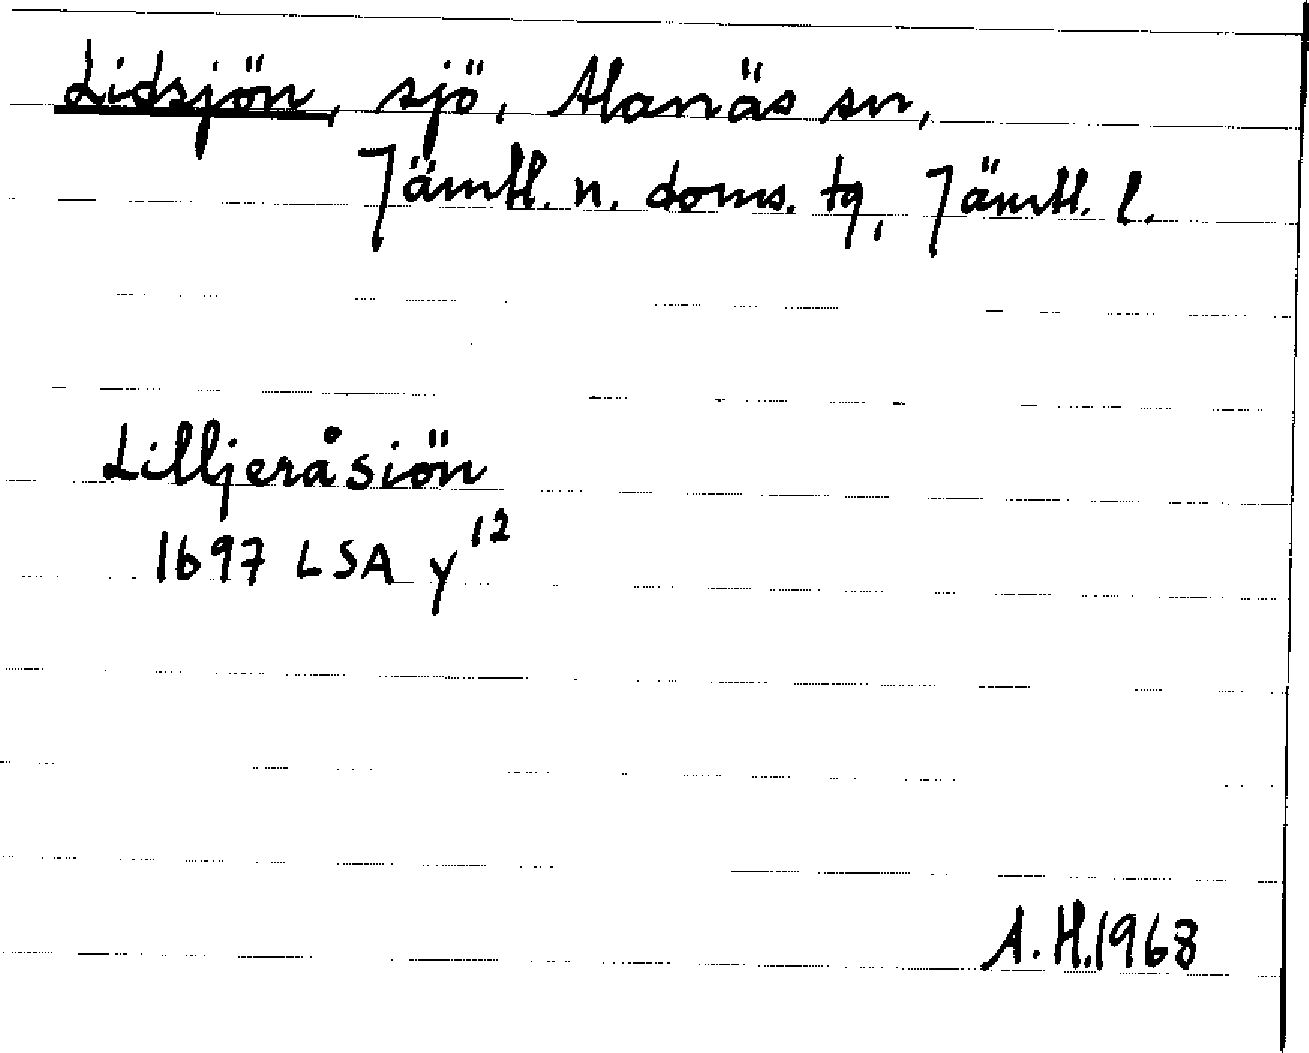 Lidsjön, sjö, Alanäs sn,
Jämtl. n. doms. tg, Jämtl. l.
Lilljeråsiön
1697 LSA y 12
A.H.1968